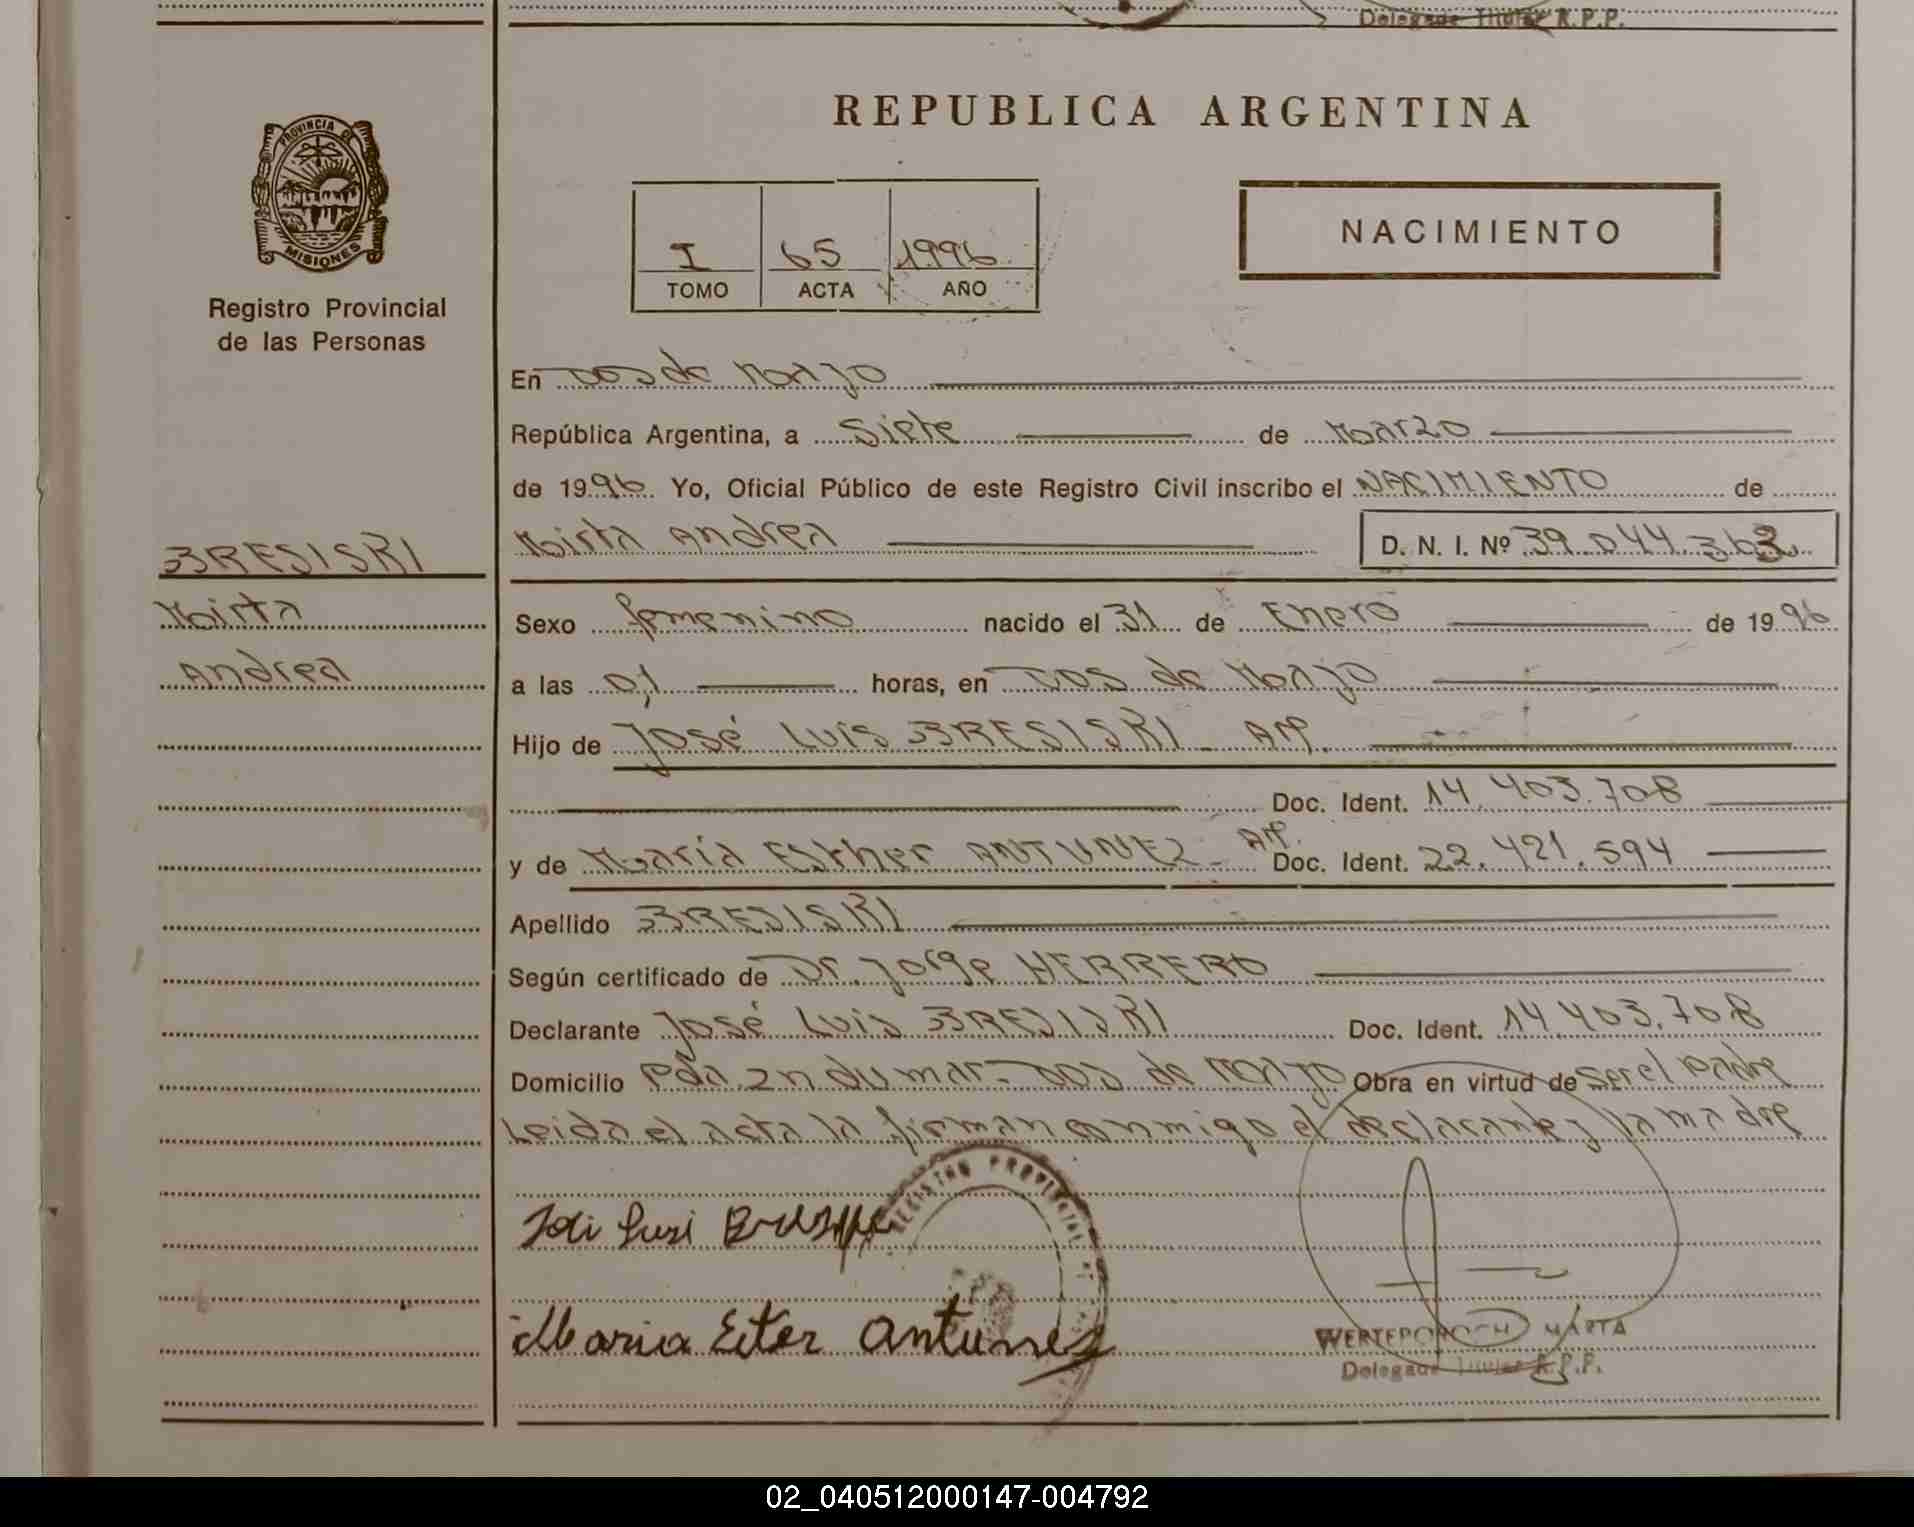 Delegado Titular R.P.P.
PROVINCIA DE
MISIONES
Registro Provincial
de las Personas
REPUBLICA ARGENTINA
I 65 1996
TOMO ACTA AÑO
NACIMIENTO
En Dos de Mayo
República Argentina, a Siete de Marzo
de 1996 Yo, Oficial Público de este Registro Civil inscribo el NACIMIENTO de
Mirta Andrea D. N. I. Nº 39.044.363
BRESISKI
Mirta
Andrea
Sexo femenino nacido el 31 de Enero de 1996
a las 01 horas, en Dos de Mayo
Hijo de José Luis BRESISKI - AR.
Doc. Ident. 14.403.708
y de María Esther ANTUNEZ - AR. Doc. Ident. 22.421.594
Apellido BRESISKI
Según certificado de Dr. Jorge HERRERO
Declarante José Luis BRESISKI Doc. Ident. 14.403.708
Domicilio Pda. Indumar - Dos de Mayo Obra en virtud de ser el padre
Leida el acta la firman conmigo el declarante y la madre
REGISTRO PROVINCIAL DE
Maria Ester Antunes
WERTEPOROCH MARTA
Delegado Titular R.P.P.
02_040512000147-004792